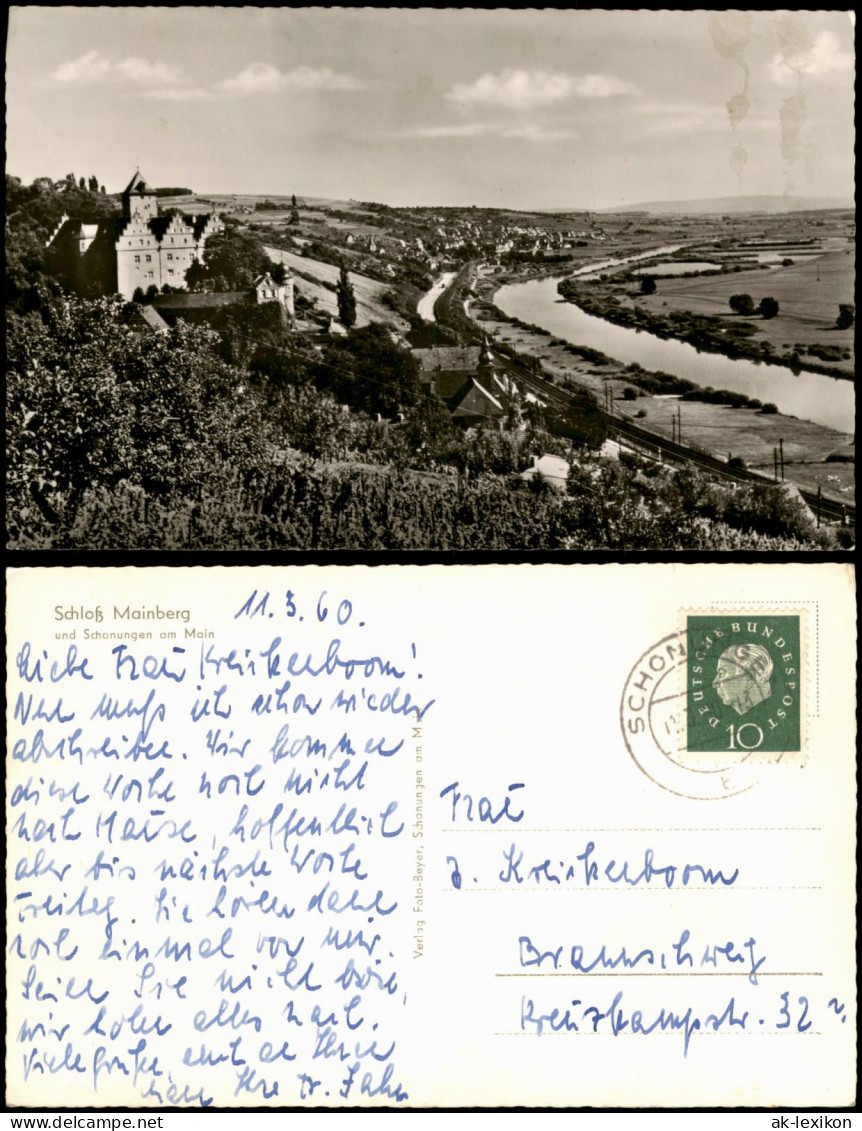 Schloß Mainberg
und Schonungen am Main
11.3.60.
Liebe Frau Kreickenboom!
Nun muß ich schon wieder
abschreiben. Wir kommen
diese Woche noch nicht
nach Hause, hoffentlich
aber bis nächste Woche
Freitag. Sie hören dann
noch einmal von mir.
Seien Sie nicht böse,
wir holen alles nach.
Viele Grüße, auch an Ihren
von Ihre Fr. Jahn
Verlag Foto-Beyer, Schonungen am Main
SCHONUNGEN
DEUTSCHE BUNDESPOST
10
Frau
J. Kreickenboom
Braunschweig
Kreuzkampstr. 32
www.ak-ansichtskarten.de
ak-lexikon